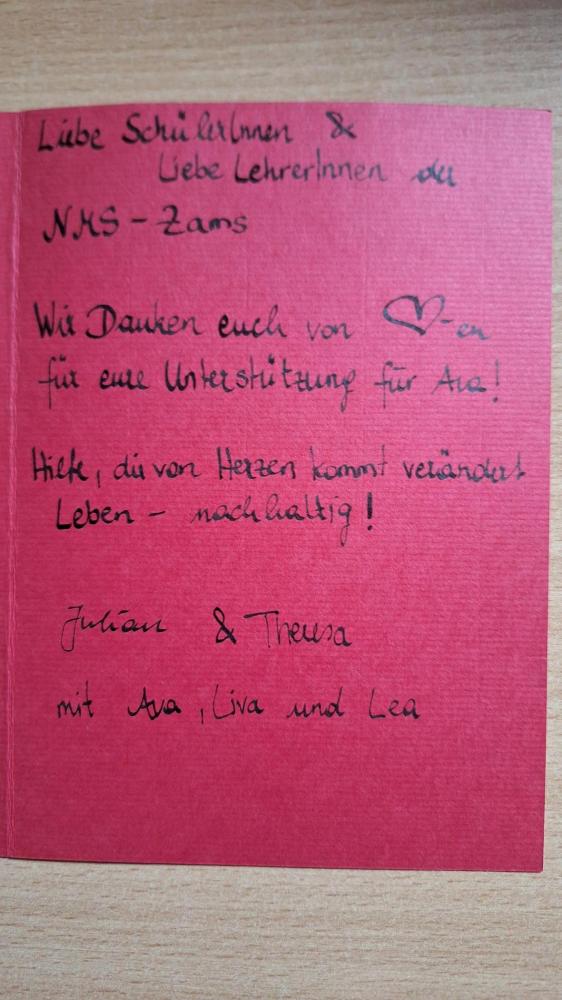 Liebe SchülerInnen &
Liebe LehrerInnen der
NMS - Zams
Wir Danken euch von ♡-en
für eure Unterstützung für Ava!
Hilfe, die von Herzen kommt verändert
Leben - nachhaltig!
Julian & Theresa
mit Ava, Liva und Lea